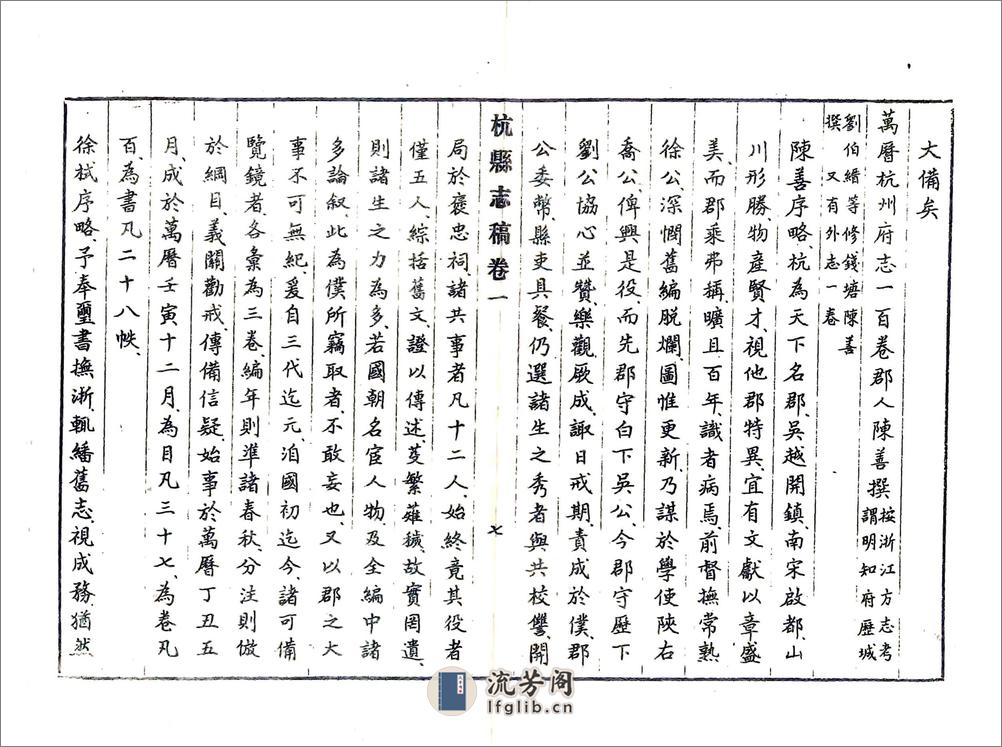 大備矣
萬曆杭州府志一百卷郡人陳善撰按浙江方志考
謂明知府歷城
劉伯縉等修錢塘陳善
撰又有外志一卷
陳善序略、杭為天下名郡、吳越開鎮、南宋啟都、山
川形勝、物產賢才、視他郡特異、宜有文獻以章盛
美、而郡乘弗稱曠且百年、識者病焉、前督撫常熟
徐公、深憫舊編脫爛、圖惟更新、乃謀於學使陝右
喬公、俾興是役、而先郡守白下吳公、今郡守歷下
劉公、協心並贊、樂觀厥成、諏日戒期、責成於僕、郡
公委幣、縣吏具餐、仍選諸生之秀者與共校讐、開
杭縣志稿卷一
七
局於褒忠祠、諸共事者凡十二人、始終竟其役者
僅五人、綜括舊文、證以傳述、芟繁薙穢、故實罔遺、
則諸生之力為多、若國朝名宦人物及全編中諸
多論叙、此為僕所竊取者、不敢妄也、又以郡之大
事不可無紀、爰自三代迄元、洎國初迄今、諸可備
覽鏡者、各彙為三卷、編年則準諸春秋、分注則倣
於綱目、義關勸戒、傳備信疑、始事於萬曆丁丑五
月、成於萬曆壬寅十二月、為目凡三十七、為卷凡
百、為書凡二十八帙、
徐栻序略、予奉璽書撫浙、輒繙舊志、視成務猶然
流芳阁
lfglib.cn